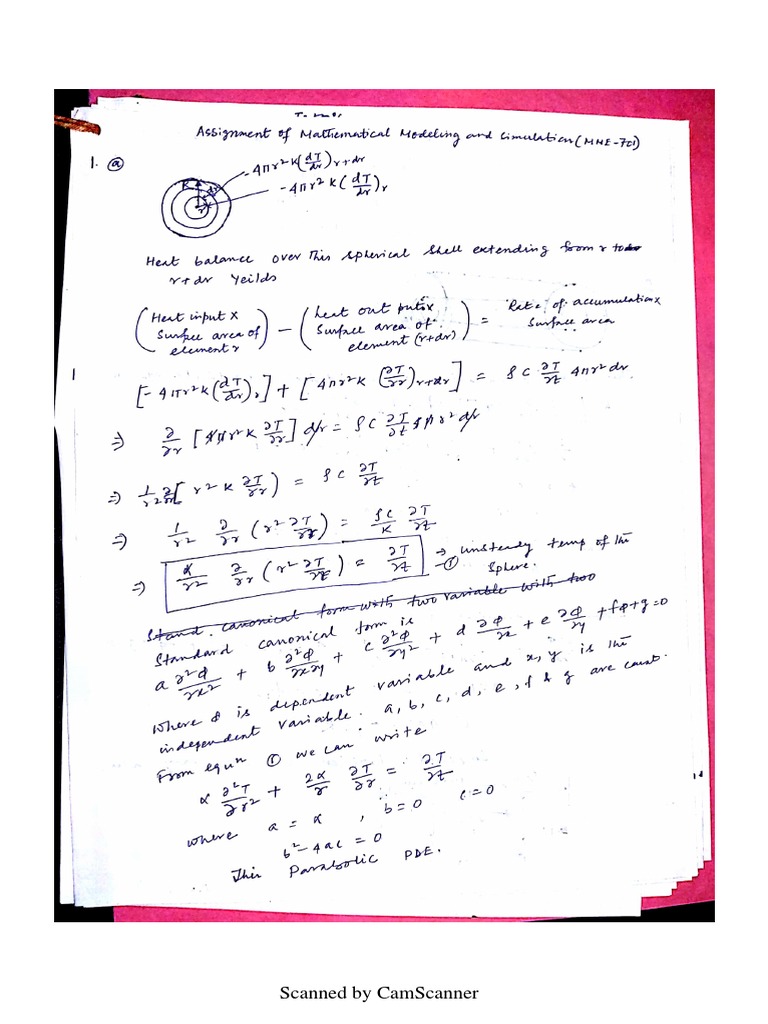 Assignment of Mathematical Modeling and Simulation (MME-701)
1. ⓐ
-4πr²K(dT/dr)r+dr
-4πr²K(dT/dr)r
Heat balance over this spherical shell extending from r to
r+dr Yeilds
(Heat input x Surface area of element r) − (heat out put x Surface area of element (r+dr)) = Rate of accumulation x Surface area
[-4πr²K(dT/dr)r] + [4πr²K(∂T/∂r)r+dr] = ρC ∂T/∂t 4πr²dr
⇒ ∂/∂r [4πr²K ∂T/∂r] dr = ρC ∂T/∂t 4πr²dr
⇒ 1/r² ∂/∂r [r²K ∂T/∂r) = ρC ∂T/∂t
⇒ 1/r² ∂/∂r (r² ∂T/∂r) = ρC/K ∂T/∂t
⇒ α/r² ∂/∂r (r² ∂T/∂r) = ∂T/∂t → ① unsteady temp of the Sphere.
Stand. canonical form with two variable with two
Standard canonical form is
a ∂²Φ/∂x² + b ∂²Φ/∂x∂y + c ∂²Φ/∂y² + d ∂Φ/∂x + e ∂Φ/∂y + fΦ + g = 0
where Φ is dependent variable and x, y is the
independent variable. a, b, c, d, e, f & g are const.
From equn ① we can write
α ∂²T/∂r² + 2α/r ∂T/∂r = ∂T/∂t
where a = α, b = 0 c = 0
b² − 4ac = 0
This Parabolic PDE.
Scanned by CamScanner